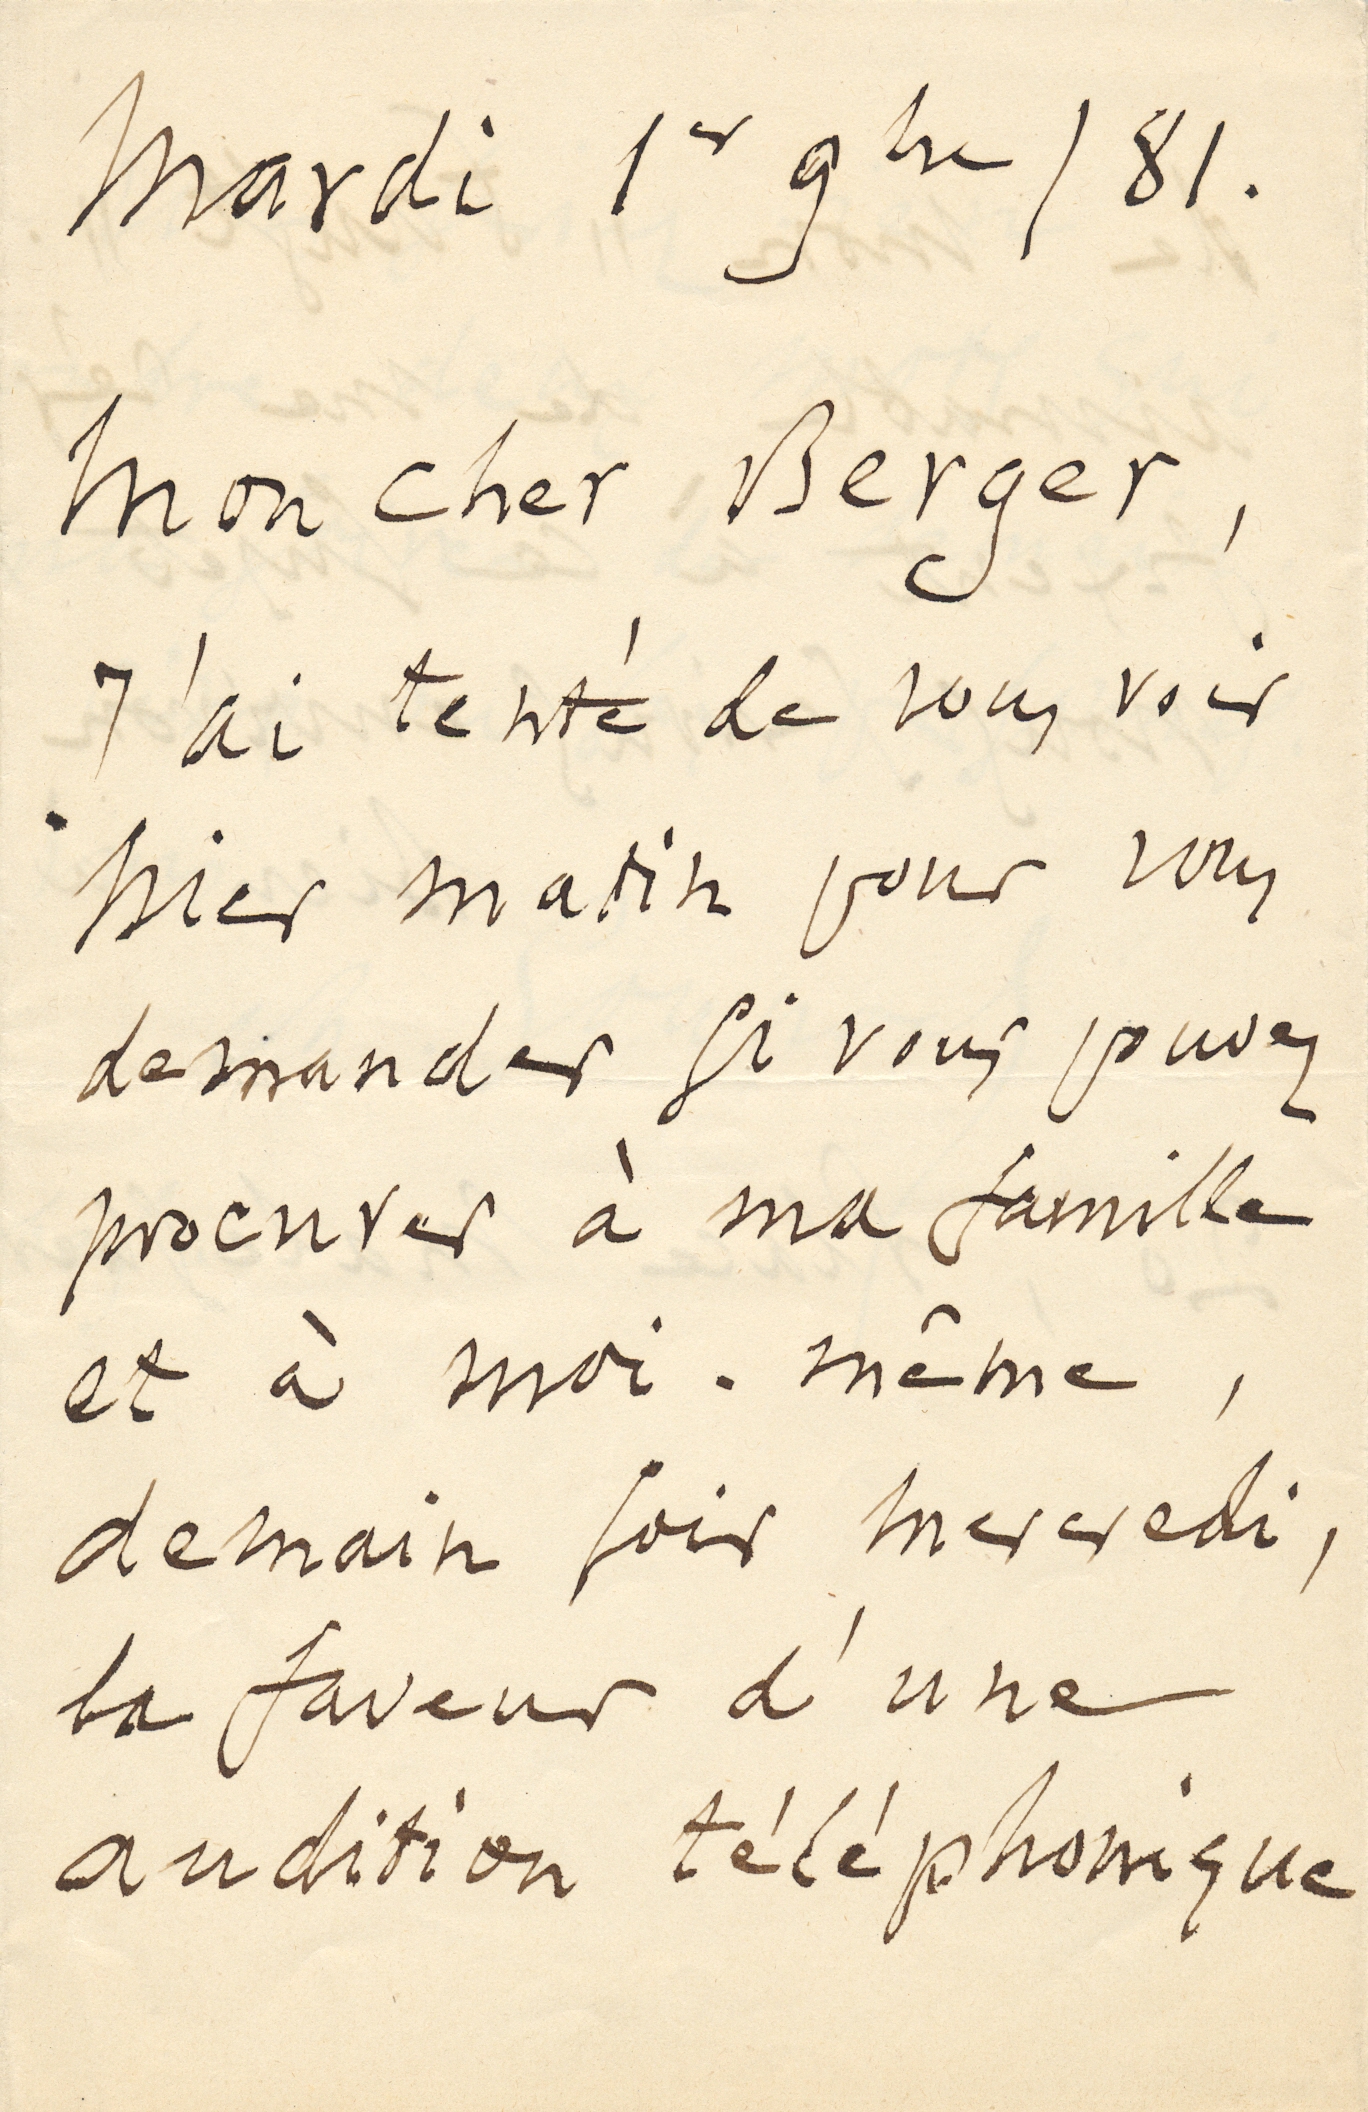 Mardi 1er 9bre / 81.
Mon cher Berger,
J'ai tenté de vous voir
hier matin pour vous
demander si vous pouvez
procurer à ma famille
et à moi-même,
demain soir mercredi,
la faveur d'une
audition téléphonique